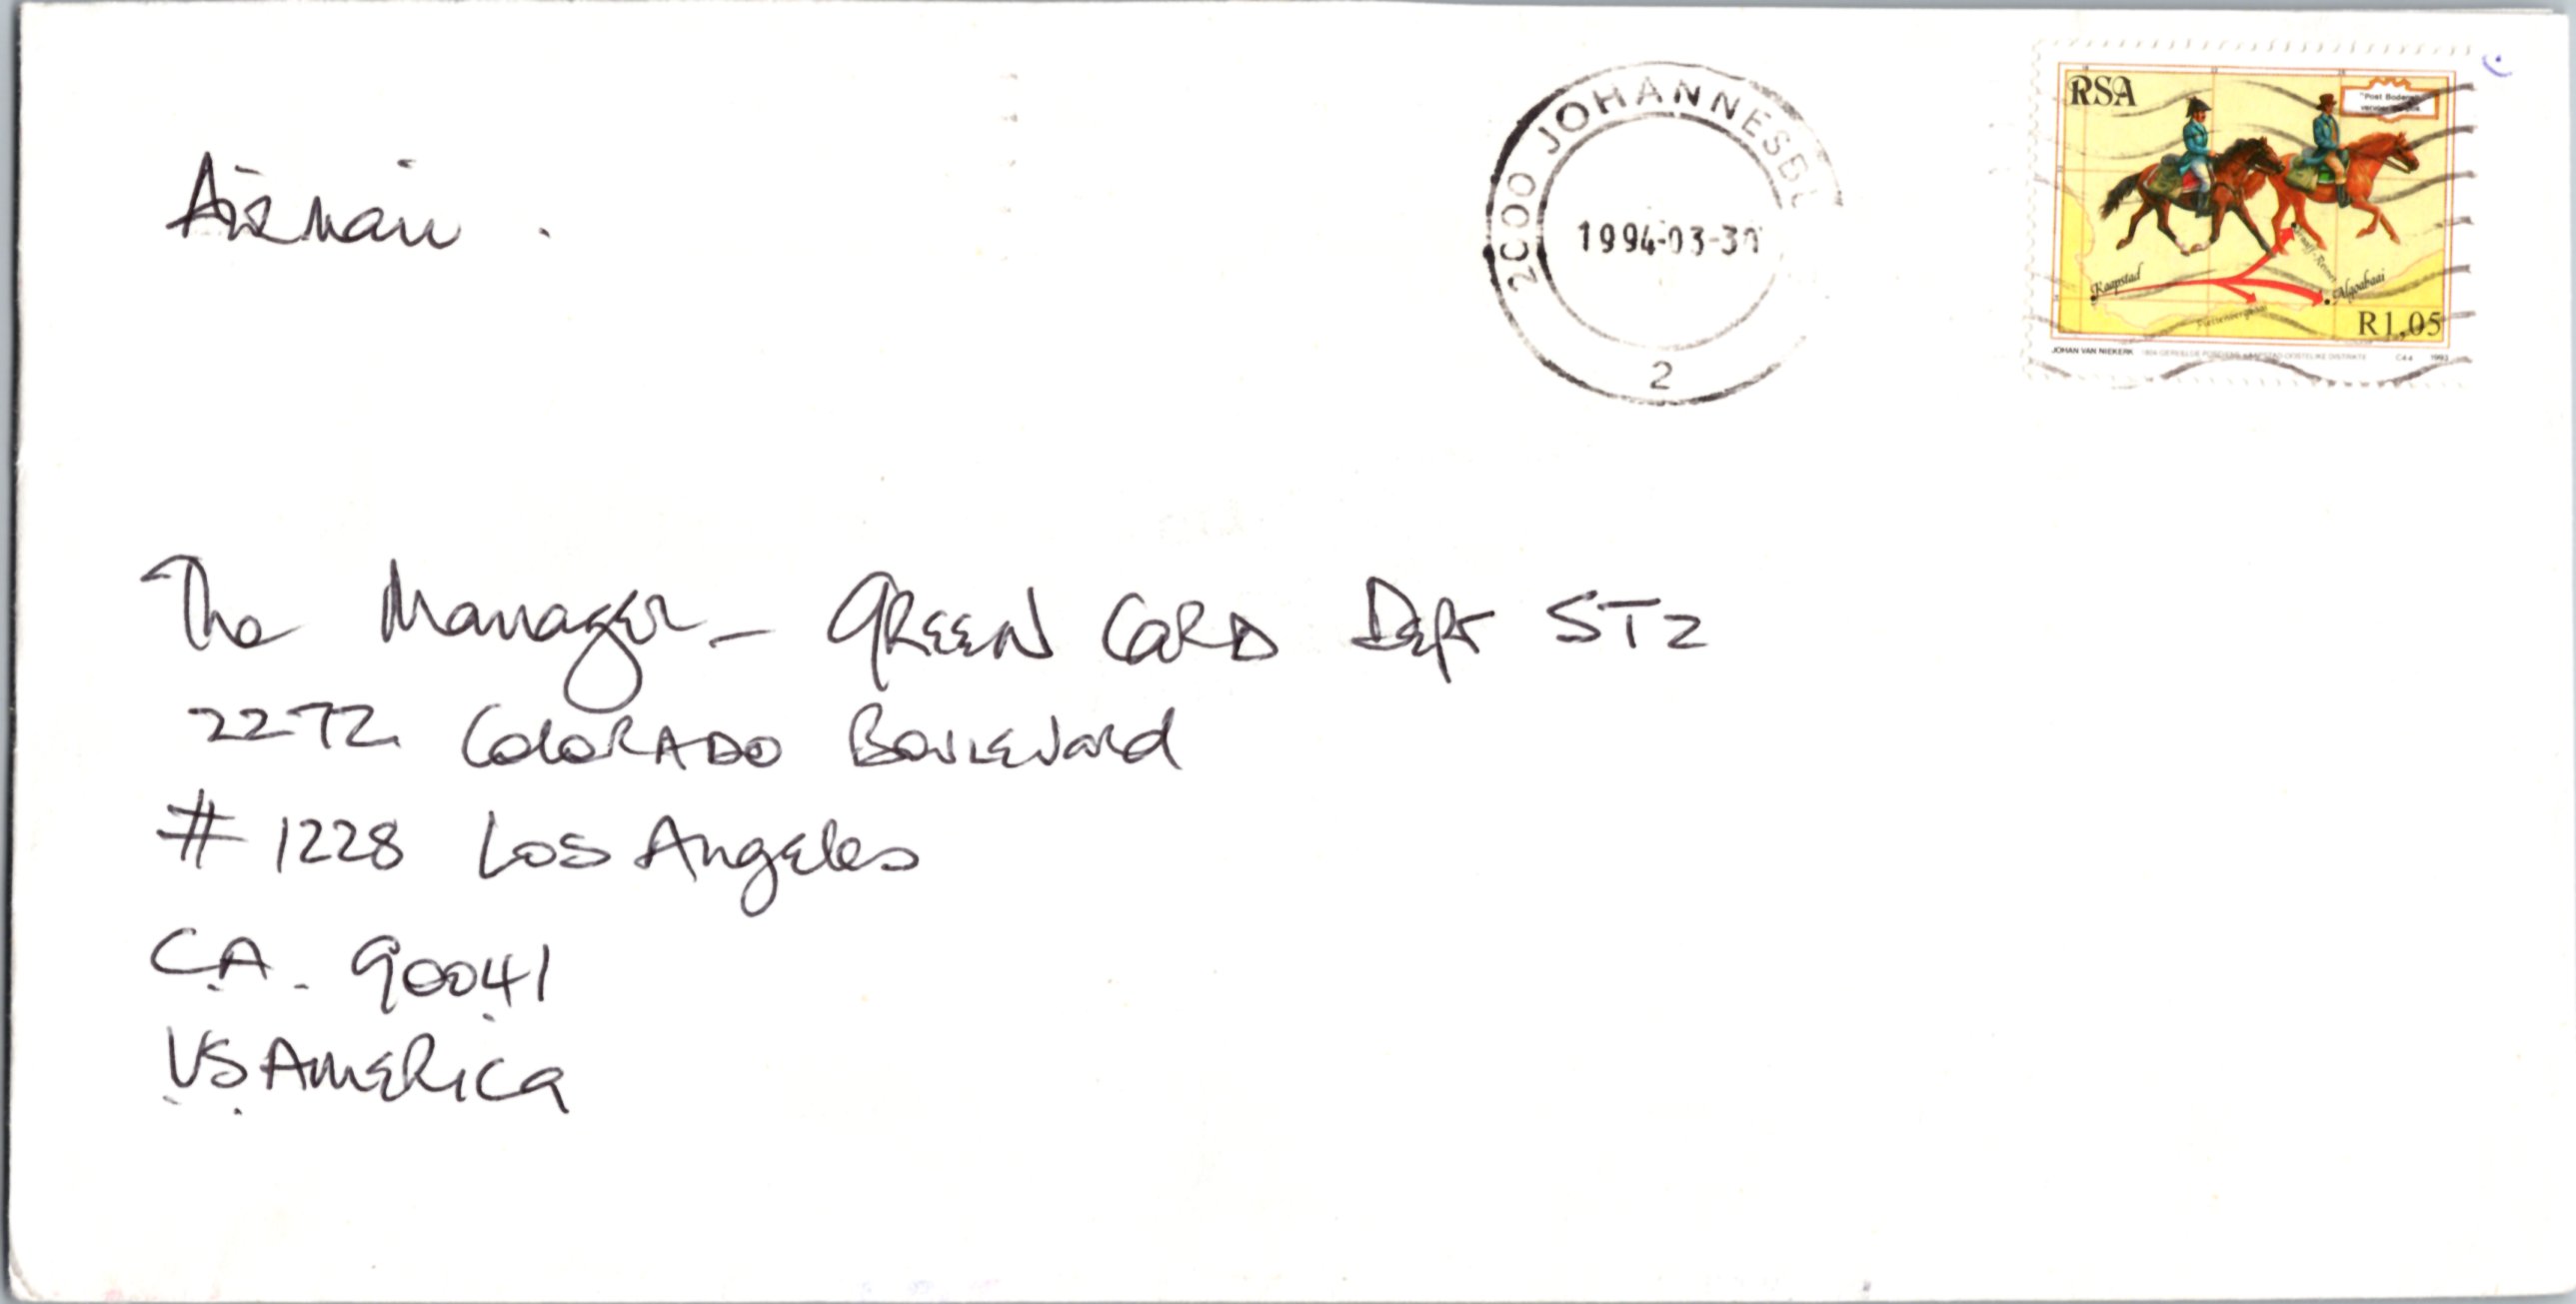 Airmail.
2000 JOHANNESBU
1994-03-30
2
RSA
"Post Boden
Kaapstad
Graaff-Reinet
Algoabaai
Plettenbergbaai
R1,05
JOHAN VAN NIEKERK
C44 1993
The Manager - GREEN CARD Dept ST2
2272 COLORADO BOULEVARD
# 1228 LOS Angeles
C.A. 90041
US AMERICA